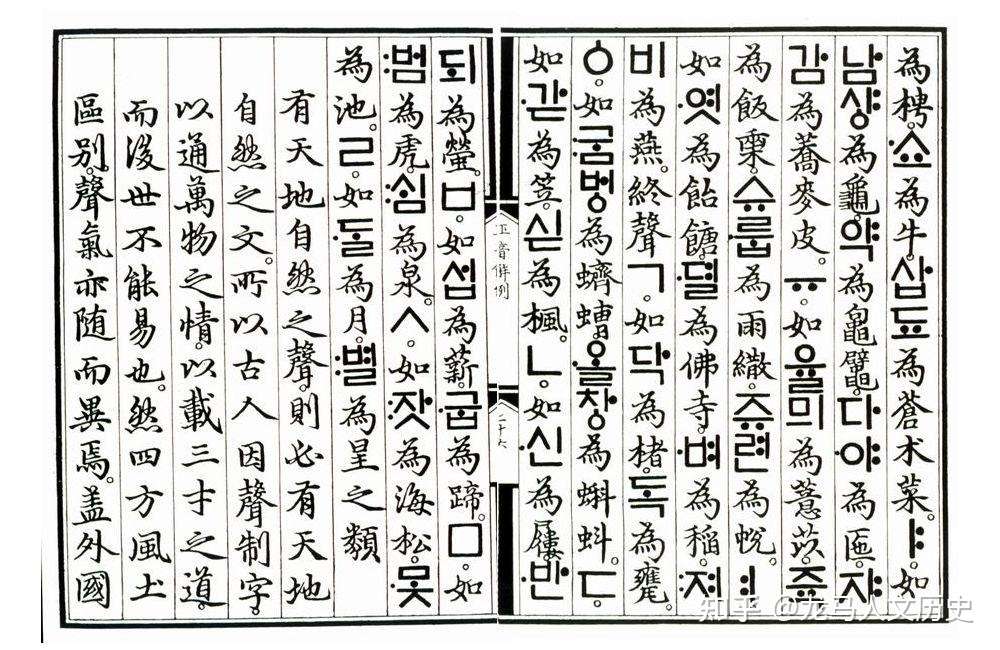 為梬。쇼為牛。삽됴為蒼朮菜。ㅑ如
남샹為龜。약為鼅鼊。다야為匜。쟈
감為蕎麥皮。ㅠ如율믜為薏苡。쥭
為飯𣗋。슈룹為雨繖。쥬련為帨。ㅕ
如엿為飴餹。뎔為佛寺。벼為稻。져
비為燕。終聲ㄱ。如닥為楮。독為甕。
ㆁ。如굼벙為蠐螬。올창為蝌蚪。ㄷ
如갇為笠。싣為楓。ㄴ。如신為屨。반
正音解例
二十六
되為螢。ㅂ。如섭為薪。굽為蹄。ㅁ。如
범為虎。심為泉。ㅅ。如잣為海松。못
為池。ㄹ。如ᄃᆞᆯ為月。별為星之類
有天地自然之聲。則必有天地
自然之文。所以古人因聲制字。
以通萬物之情。以載三才之道。
而後世不能易也。然四方風土
區別。聲氣亦随而異焉。盖外國
知乎 @龙马人文历史